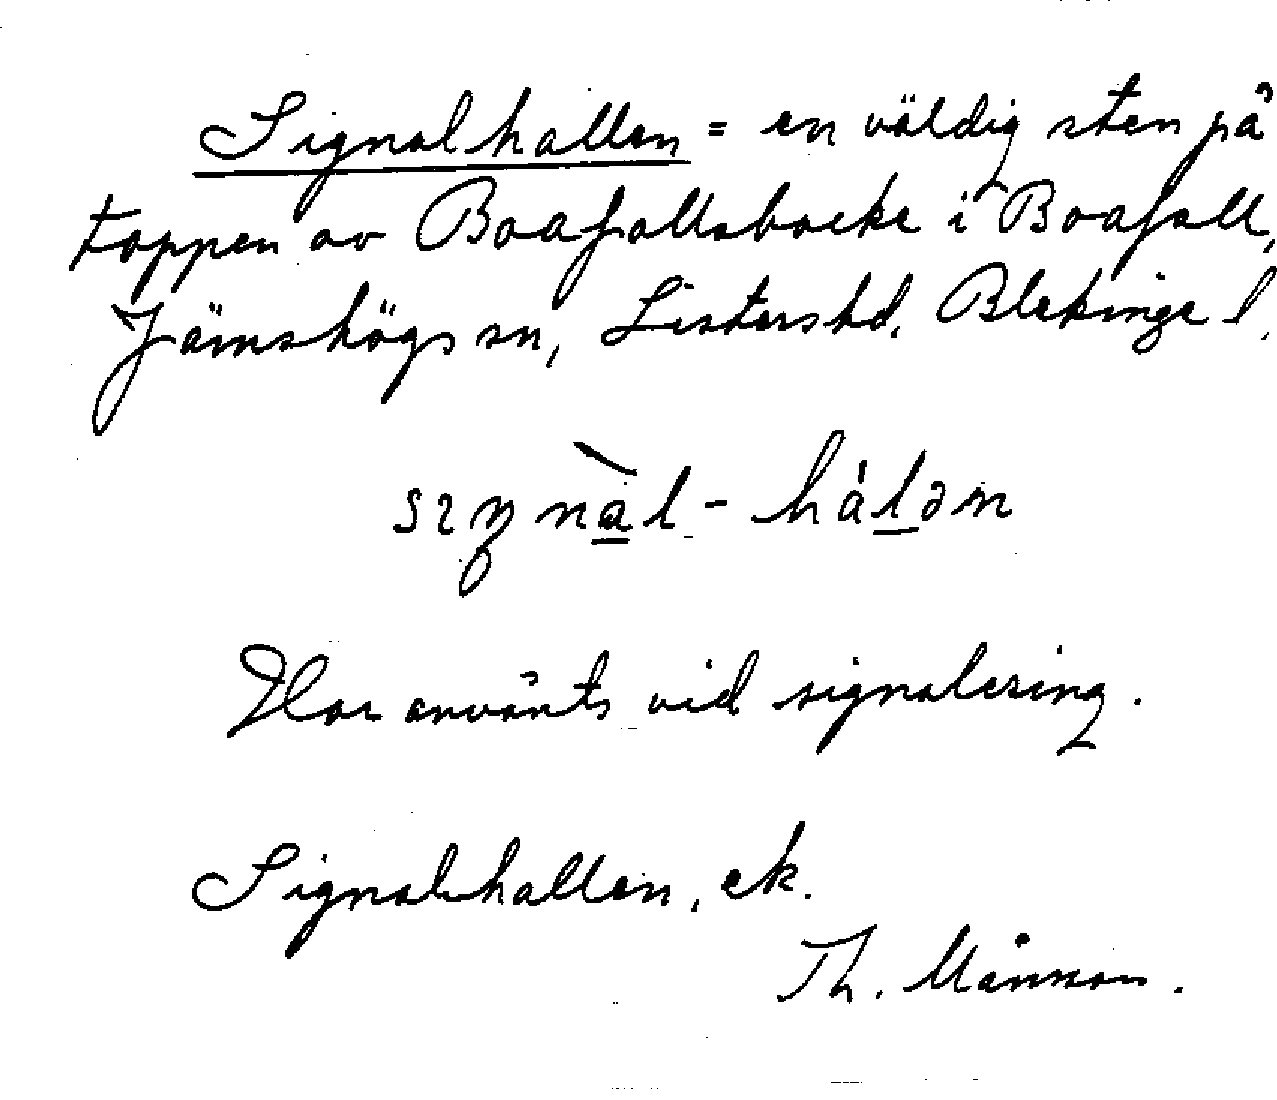 Signalhallen = en väldig sten på
toppen av Boafallsbacke i Boafall,
Jämshögs sn, Listershd. Blekinge l.
Har använts vid signalering.
Signalhallen, ek.
Th. Månson.